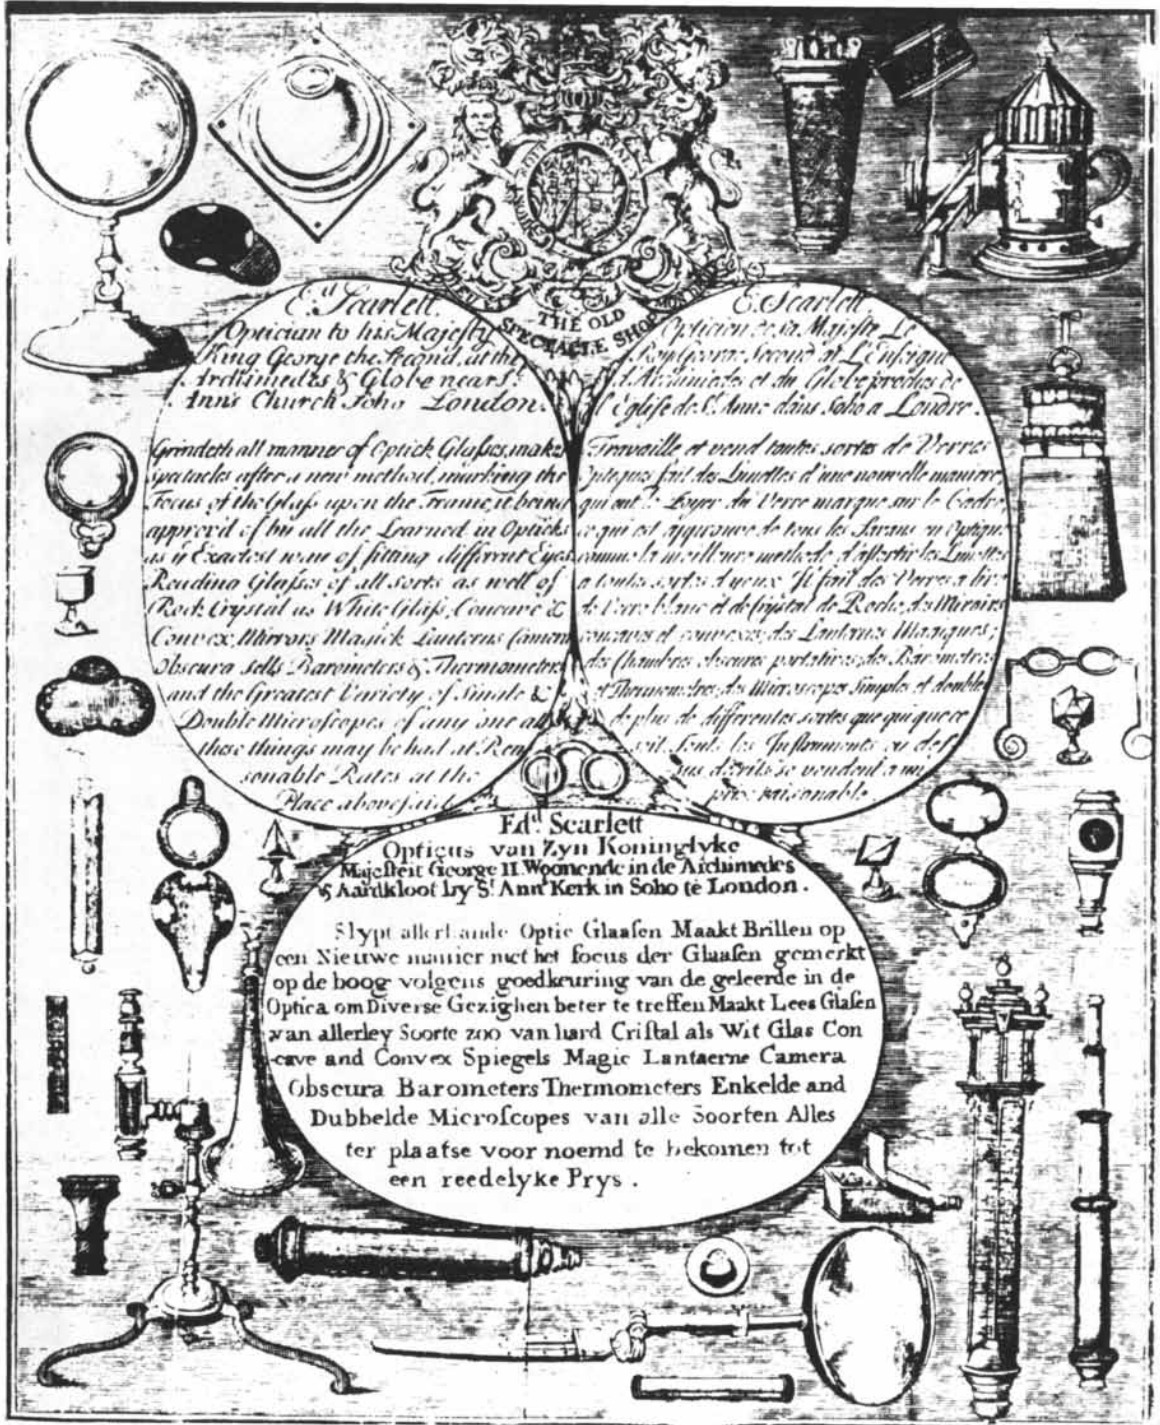 HONI SOIT MAL Y PENSE
DIEU ET MON DROIT
THE OLD
SPECTACLE SHOP
Ed. Scarlett.
Optician to his Majesty
King George the Second, at the
Archimedes & Globe near St.
Ann's Church Soho London.
Grindeth all manner of Optick Glaſses, makes
Spectacles after a new method, marking the
Focus of the Glaſs upon the Frame, it being
approv'd of by all the Learned in Opticks
as ye Exactest way of fitting different Eyes.
Reading Glaſses of all sorts as well of
Rock Crystal as White Glaſs, Concave &
Convex, Mirrors Magick Lanterns Camera
Obscura sells Barometers & Thermometers
and the Greatest Variety of Single &
Double Microſcopes of any one all
these things may be had at Rea
sonable Rates at the
Place aboveſaid
E. Scarlett
Opticien de sa Majeste Le
Roy George Second at L'Enseigne
d'Archimedes et du Globe proches de
l'Egliſe de St. Anne dans Soho a Londre.
Travaille et vend toutes sortes de Verres
Optiques fait des Lunettes d'une nouvelle maniere
qui ont le Foyer du Verre marque sur le Cadre
ce qui est approuve de tous les Savans en Optique
comme la meilleure methode d'aſsortir les Lunettes
a toutes sortes d'yeux. Il fait des Verres a lire
de Verre blanc et de Crystal de Roche, des Miroirs
concaves et convexes, des Lanternes Magiques;
des Chambres obscures portatives, des Barometres
et Thermometres, des Microscopes Simples et doubles
de plus de differentes sortes que qui que ce
soit. Touts les Inſtruments cy deſ
sus decrits se vendent a un
prix raisonable
Edd. Scarlett
Opticus van Zyn Koninglyke
Majeſteit George II. Woonende in de Archimedes
& Aardkloot by St. Ann Kerk in Soho te London.
Slypt allerhande Optic Glaaſen Maakt Brillen op
een Nieuwe manier met het focus der Glaaſen gemerkt
op de boog volgens goedkeuring van de geleerde in de
Optica om Diverse Gezighen beter te treffen Maakt Lees Glaſen
van allerley Soorte zoo van hard Criſtal als Wit Glas Con
-cave and Convex Spiegels Magic Lantaerne Camera
Obscura Barometers Thermometers Enkelde and
Dubbelde Microſcopes van alle Soorten Alles
ter plaatse voor noemd te bekomen tot
een reedelyke Prys.